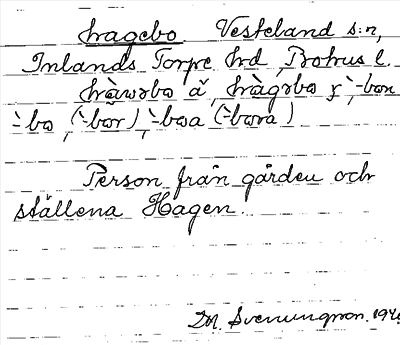 hagebo Vesteland s:n,
Inlands Torpe hrd, Bohus l.
-bo (-bör), -boa (-bora)
Person från gården och
ställena Hagen
M. Svenungsson. 194